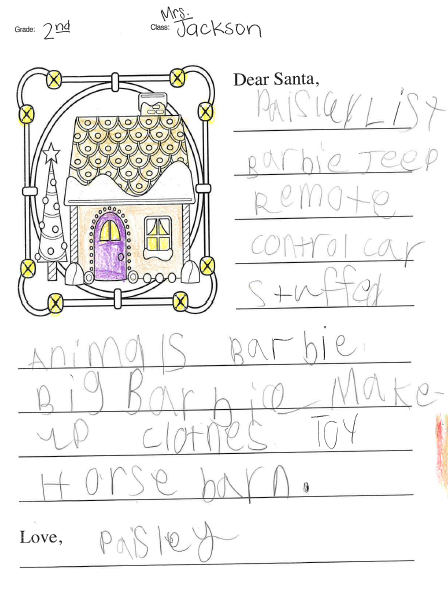 Grade: 2nd
Class: Mrs. Jackson
Dear Santa,
Paisley List
Barbie Jeep
Remote
control car
stuffed
Animals Barbie
Big Barbie Make-
up clothes Toy
Horse barn.
Love, Paisley